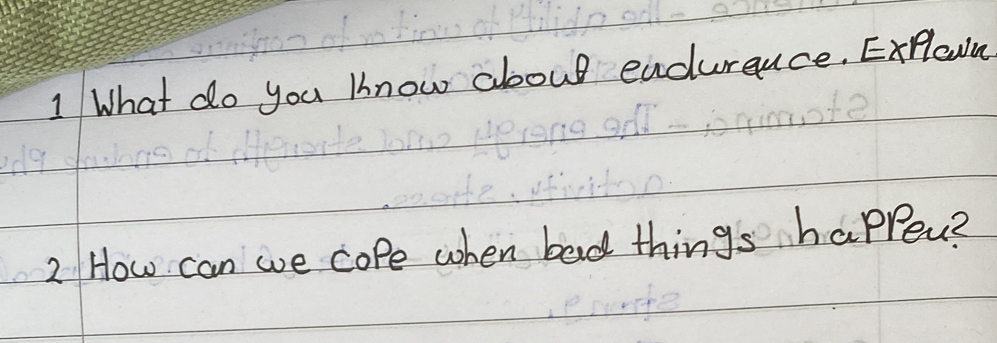 1 What do you know about endurance. Explain
2 How can we cope when bad things happen?